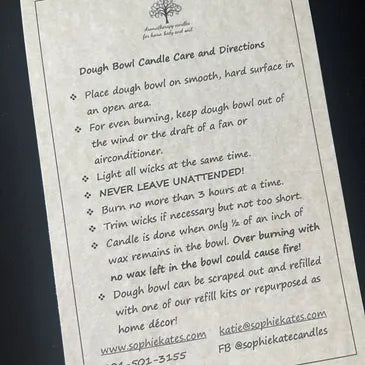 aromatherapy candles
for home, body and soul
Dough Bowl Candle Care and Directions
❖ Place dough bowl on smooth, hard surface in
an open area.
❖ For even burning, keep dough bowl out of
the wind or the draft of a fan or
airconditioner.
❖ Light all wicks at the same time.
❖ NEVER LEAVE UNATTENDED!
❖ Burn no more than 3 hours at a time.
❖ Trim wicks if necessary but not too short.
❖ Candle is done when only ½ of an inch of
wax remains in the bowl. Over burning with
no wax left in the bowl could cause fire!
❖ Dough bowl can be scraped out and refilled
with one of our refill kits or repurposed as
home décor!
www.sophiekates.com katie@sophiekates.com
501-3155 FB @sophiekatecandles